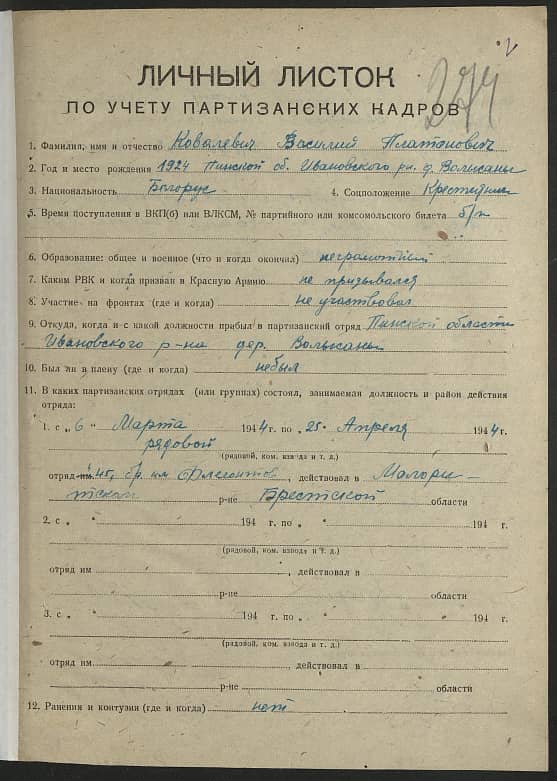 274
ЛИЧНЫЙ ЛИСТОК
ПО УЧЕТУ ПАРТИЗАНСКИХ КАДРОВ
1. Фамилия, имя и отчество Ковалевич Василий Платанович
2. Год и место рождения 1924 Пинской об. Ивановского рн. д. Волысаны
3. Национальность Белорус 4. Соцположение
5. Время поступления в ВКП(б) или ВЛКСМ, № партийного или комсомольского билета б/п
6. Образование: общее и военное (что и когда окончил)
7. Каким РВК и когда призван в Красную Армию не призывался
8. Участие на фронтах (где и когда) не участвовал
9. Откуда, когда и с какой должности прибыл в партизанский отряд Пинской области
Ивановского р-на дер. Волысаны
10. Был ли в плену (где и когда) небыл
11. В каких партизанских отрядах (или группах) состоял, занимаемая должность и район действия
отряда:
1. с „6" Марта 1944 г. по „25" Апреля 1944 г.
рядовой
(рядовой, ком. взвода и т. д.)
отряд им. 45, бр. им. , действовал в Малори-
тском р-не Брестской области
2. с „ " 194 г. по „ " 194 г.
(рядовой, ком. взвода и т. д.)
отряд им , действовал в
р-не области
3. с „ " 194 г. по „ " 194 г.
(рядовой, ком. взвода и т. д.)
отряд им , действовал в
р-не области
12. Ранения и контузии (где и когда) нет